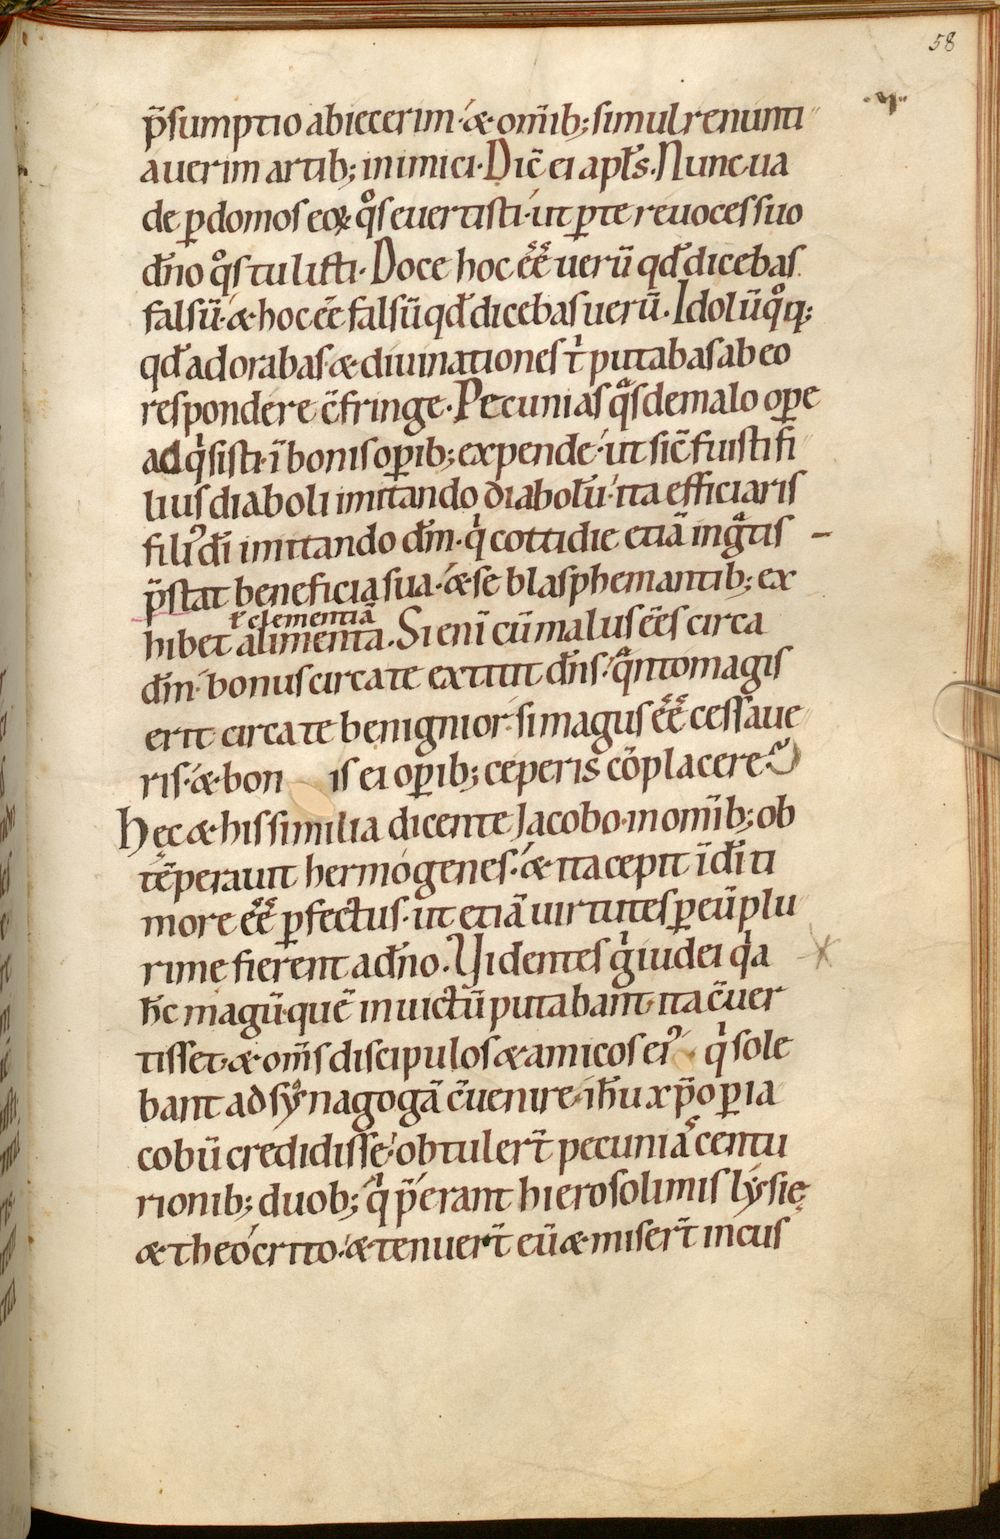 58
p̄sumptio abiecerim· & om̄ib; simul renunti
auerim artib; inimici· Dic̄ ei apl̄s. Nunc ua
de ꝑ domos eoꝝ qͦs euertisti· ut ꝑ te reuoces suo
dn̄o qͦs tulisti· Doce hoc ee͂ uerū qd̄ dicebas
falsū· & hoc ee͂ falsū qd̄ dicebas uerū. Idolū qͦq;
qd̄ adorabas & diuinationes t͛ putabas ab eo
respondere c̄fringe· Pecunias qͣs de malo oꝑe
adqͥsisti· ī bonis oꝑib; expende· ut sic̄ fuisti fi
lius diaboli imitando diabolū· ita efficiaris
filiꝰ dī imitando dm̄· qͥ cottidie etiā ingͣtis
p̄stat beneficia sua· & se blasphemantib; ex
ł clementiā
hibet alimenta. Si enī cū malus ee͂s circa
dm̄· bonus circa te extitit dn̄s· qͣnto magis
erit circa te benignior· si magus ee͂ cessaue
ris· & bon is ei oꝑib; ceperis cōplacere?
Hęc & his similia dicente Jacobo· in om̄ib; ob
tēperauit hermógenes· & ita cepit ī dī ti
more ee͂ ꝑfectus· ut etiā uirtutes ꝑ eū plu
rime fierent a dn̄o. Videntes gͥ iudei qͥa
h̄c magū· quē inuictū putabant· ita c̄uer
tisset· & om̄s discipulos & amicos eiꝰ qͥ sole
bant ad synagogā c̄uenire· ih̄u xp̄o ꝑ ia
cobū credidisse· obtuler̄t pecuniā centu
rionib; duob; qͥ p̄erant hierosolimis lýsię
& theócrito· & tenuer̄t eū & miser̄t in cus